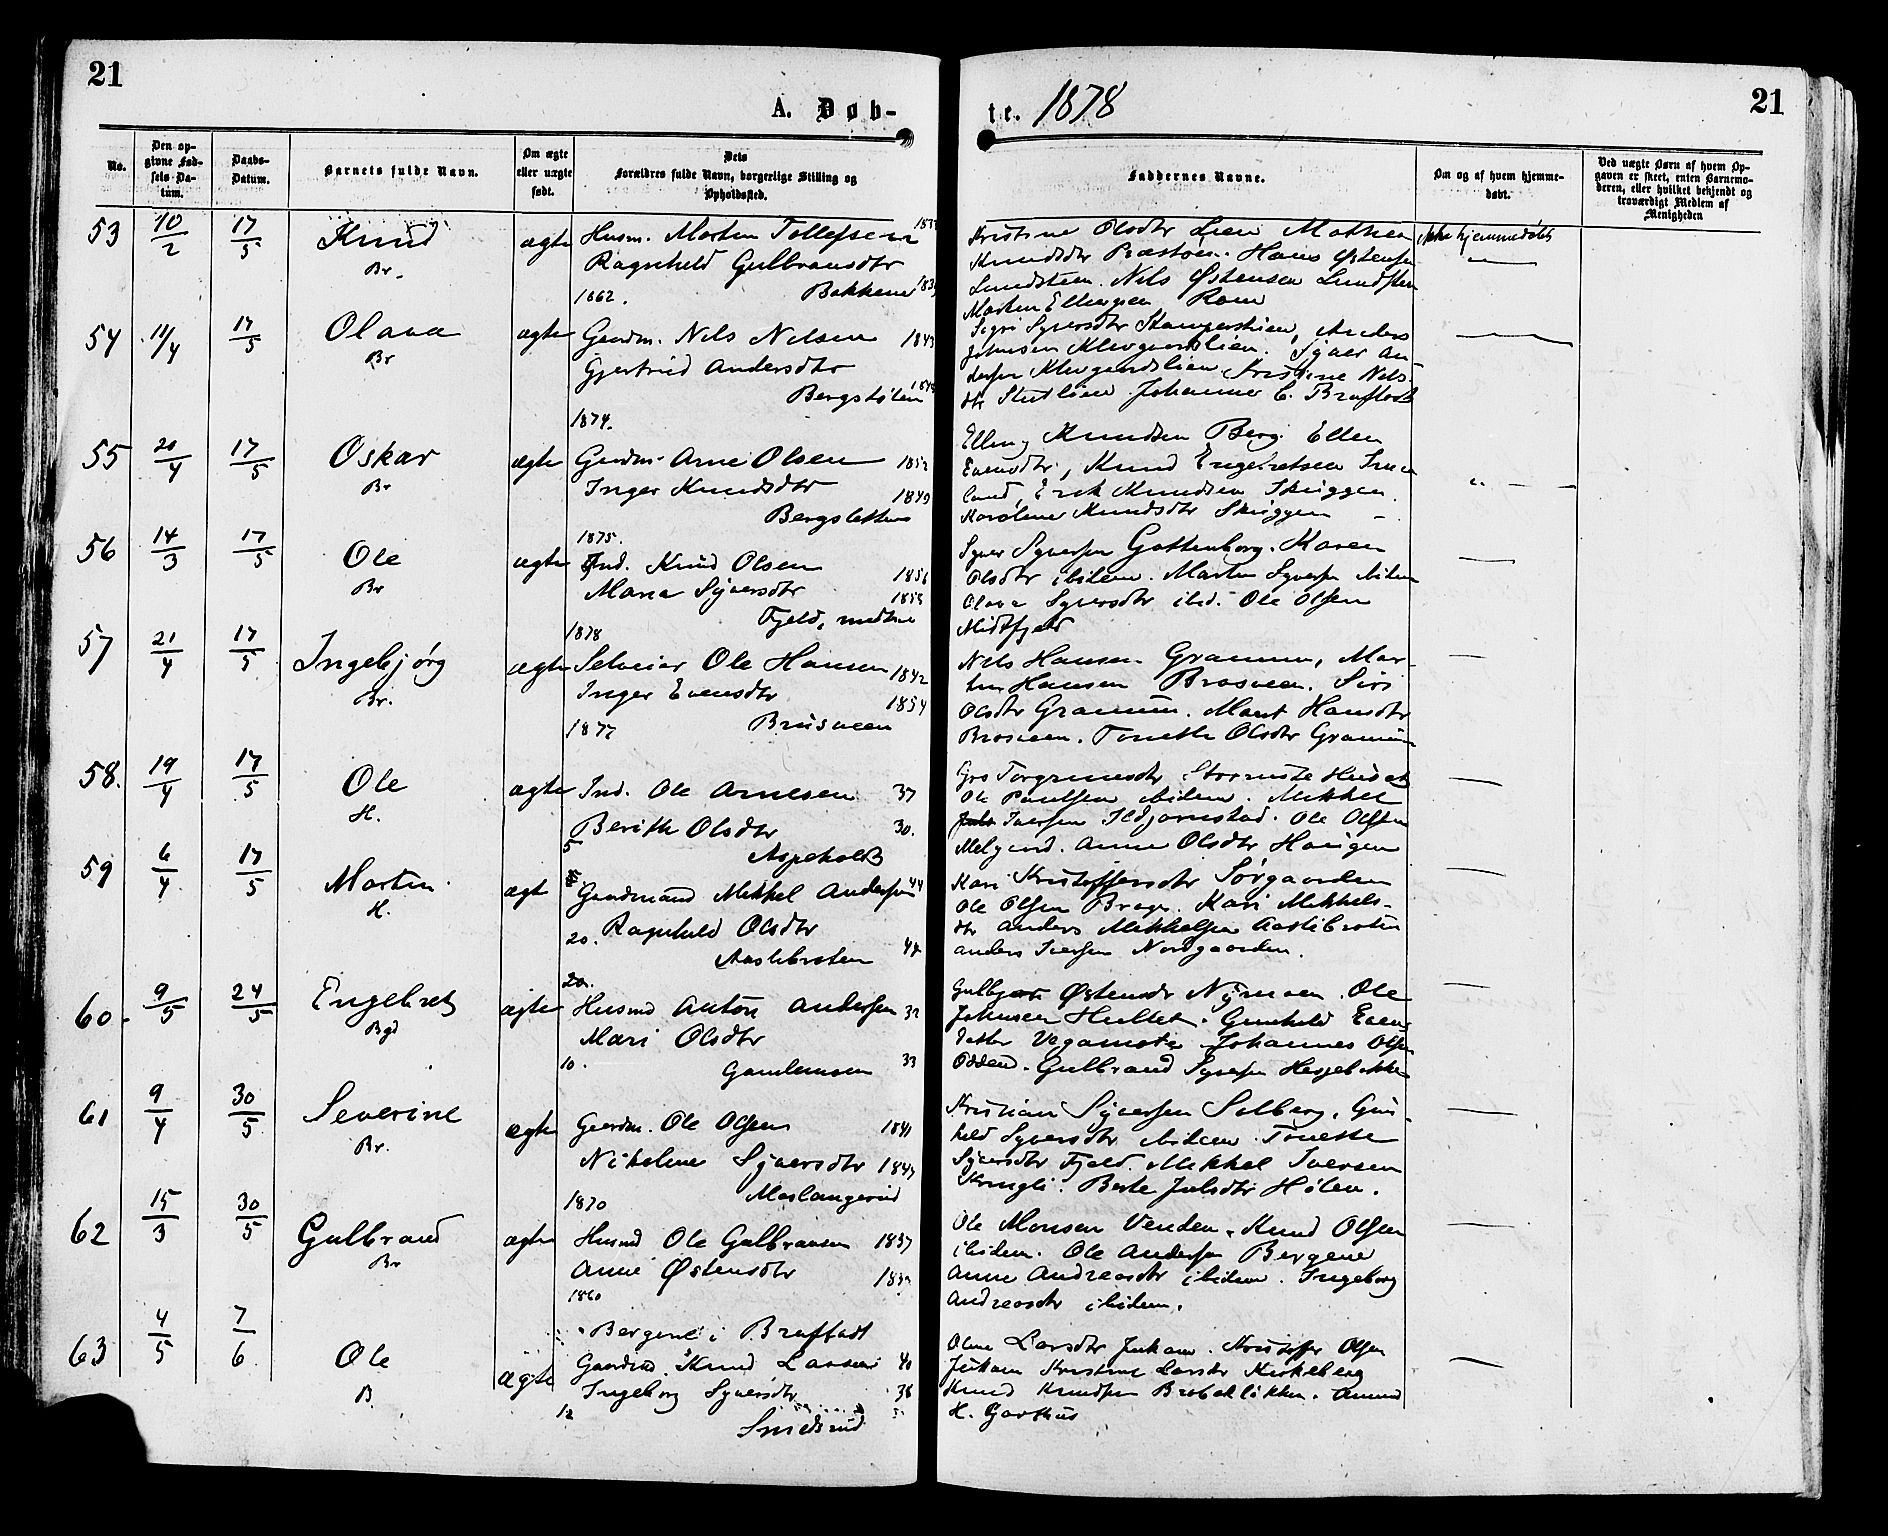 21
A. Døb-
te. 1878
21
No.
Den op-
givne Fød-
sels-Da-
tum.
Daabs-
Datum.
Barnets fulde Navn.
Om ægte
eller uægte
født.
Dets
Forældres fulde Navn, borgerlige Stilling og
Opholdssted.
Faddernes Navne.
Om og af hvem hjemme-
døbt.
Ved uægte Børn af hvem Op-
gaven er skeet, enten Barnemo-
deren, eller hvilket bekjendt og
troværdigt Medlem af
Menigheden
53 10/2 17/5 Knud ægte Husm. Morten Tollefsen
Br. Ragnhild Gulbransdtr
1862. Bakkene
Kristine Olsdtr Lien Mathea ikke hjemmedøbt
Knudsdtr Præstøen. Hans Østensen
Lundsteen. Nils Østensen Lundsten
Morten Ellingsen Roen
54 11/4 17/5 Olava ægte Gaardm. Nils Nilsen 1843
Br Gjertrud Andersdtr
Bergstølen
1874.
Sigri Syversdtr Anders
Johnsen Klevgaardslien. Syver An-
dersen Klevgaardslien Kristine Nils-
dtr Stutlien Johannes C. Braftadt
55 20/4 17/5 Oskar ægte Gaardm. Arne Olsen 1852
Br Inger Knudsdtr 1849
Bergsletten
1875.
Elling Knudsen Berg. Ellen
Evensdtr, Knud Engebretsen
land, Erik Knudsen Skriggen.
Karoline Knudsdtr Skriggen
56 14/3 17/5 Ole ægte Ind. Knud Olsen 1856
Br Maria Syversdtr 1855
Fjeld, medtre
1878
Syver Syversen Gottenborg. Karen
Olsdtr ibidem. Martin Syversen ibidem
Olava Syversdtr ibid. Ole Olsen
Midtfjeld
57 21/4 17/5 Ingebjørg ægte Selveier Ole Hansen 1842
Br. Inger Evensdtr 1854
1877 Brusveen
Nils Hansen Gramm, Mar-
tin Hansen Brosveen. Siri
Olsdtr Gramm. Marit Hansdtr
Brosveen. Tonette Olsdtr Gramm
58. 19/4 17/5 Ole ægte Ind. Ole Arnesen 37
H. Berith Olsdtr 30.
5 Aspeholt
Gro Torgrimsdtr
Ole Paulsen ibidem. Mikkel
Iversen Ildjarnstad. Ole Olsen
Melgard. Anne Olsdtr Haugen
59 6/4 17/5 Morten. ægt Gaardmand Mikkel Andersen 44
H. 20. Ragnhild Olsdtr 42
Aaslibraten
Kari Kristoffersdtr Sørgaarden
Ole Olsen Brager. Kari Mikkels-
dtr Anders Mikkelsen Aaslibraten
Anders Iversen Nordgaarden.
60. 9/5 24/5 Engebret ægte 20. Husmd Anton Andersen 32
Bgd Mari Olsdtr
10. Gamlemoen 33
Gulbjør Østensdr Nymoen. Ole
Johnsen Hultet. Gunhild Evens-
datter Vagamoti Johannes Olsen
Odden. Gulbrand Syversen Hesjebakke
61 9/4 30/5 Severine ægte Gaardm. Ole Olsen 1841
Br. Nikoline Syversdtr 1843
1870 Maslangrud
Kristian Syversen Solberg, Gun-
hild Syversdtr ibidem. Tonette
Syversdtr Fjeld. Mikkel Iversen
Kringli. Berte Julsdtr Hølen.
62 15/3 30/5 Gulbrand ægte Husmd Ole Gulbransen 1837
Br Anne Østensdtr
1860
Bergene i Braftadt
Ole Monsen Venden. Knud Olsen
ibidem. Ole Andersen Bergene
Anne Andreasdtr ibidem. Ingeborg
Andreasdtr ibidem.
63 4/5 7/6 Ole ægte Gaardmd. Knud Larsen 40
B. Ingeborg Syversdtr 38
12 Smedsrud
Oline Larsdtr Juham. Kristoffer Olsen
Juham Kristine Larsdtr Kirkeberg
Knud Knudsen Brobakløkken. Amund
H. Garthus